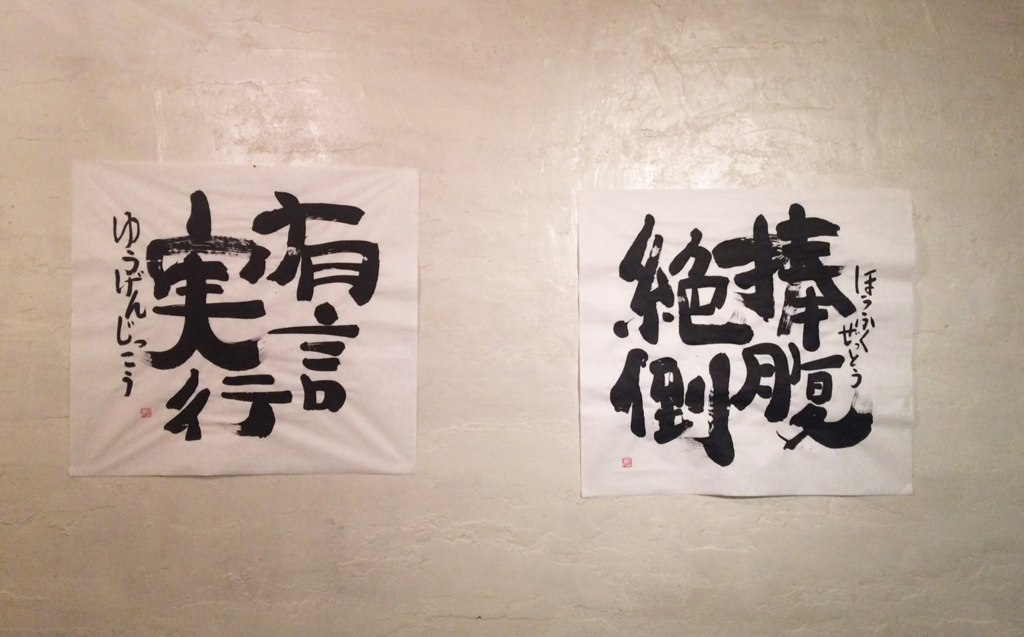 有言
実行
ゆうげんじっこう
捧腹
絶倒
ほうふくぜっとう